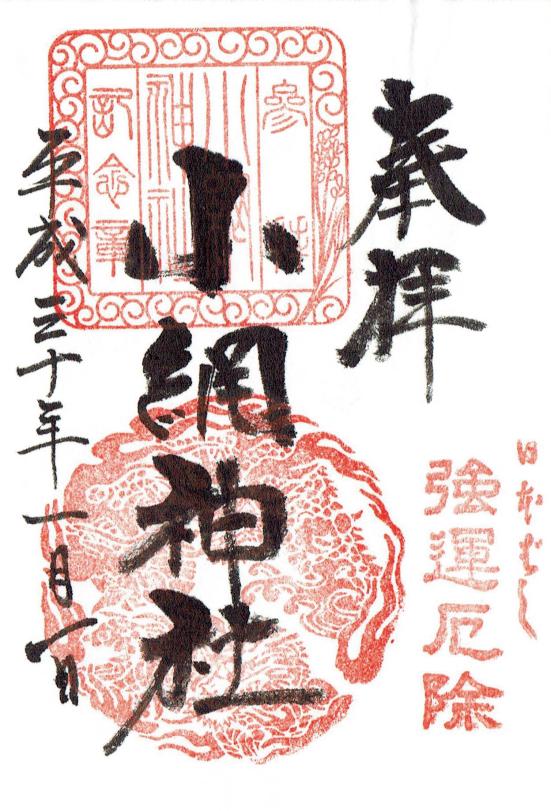 日本ばし
強運厄除
奉拝
小網神社
參拜
小網
神社
記念章
平成三十年一月一日